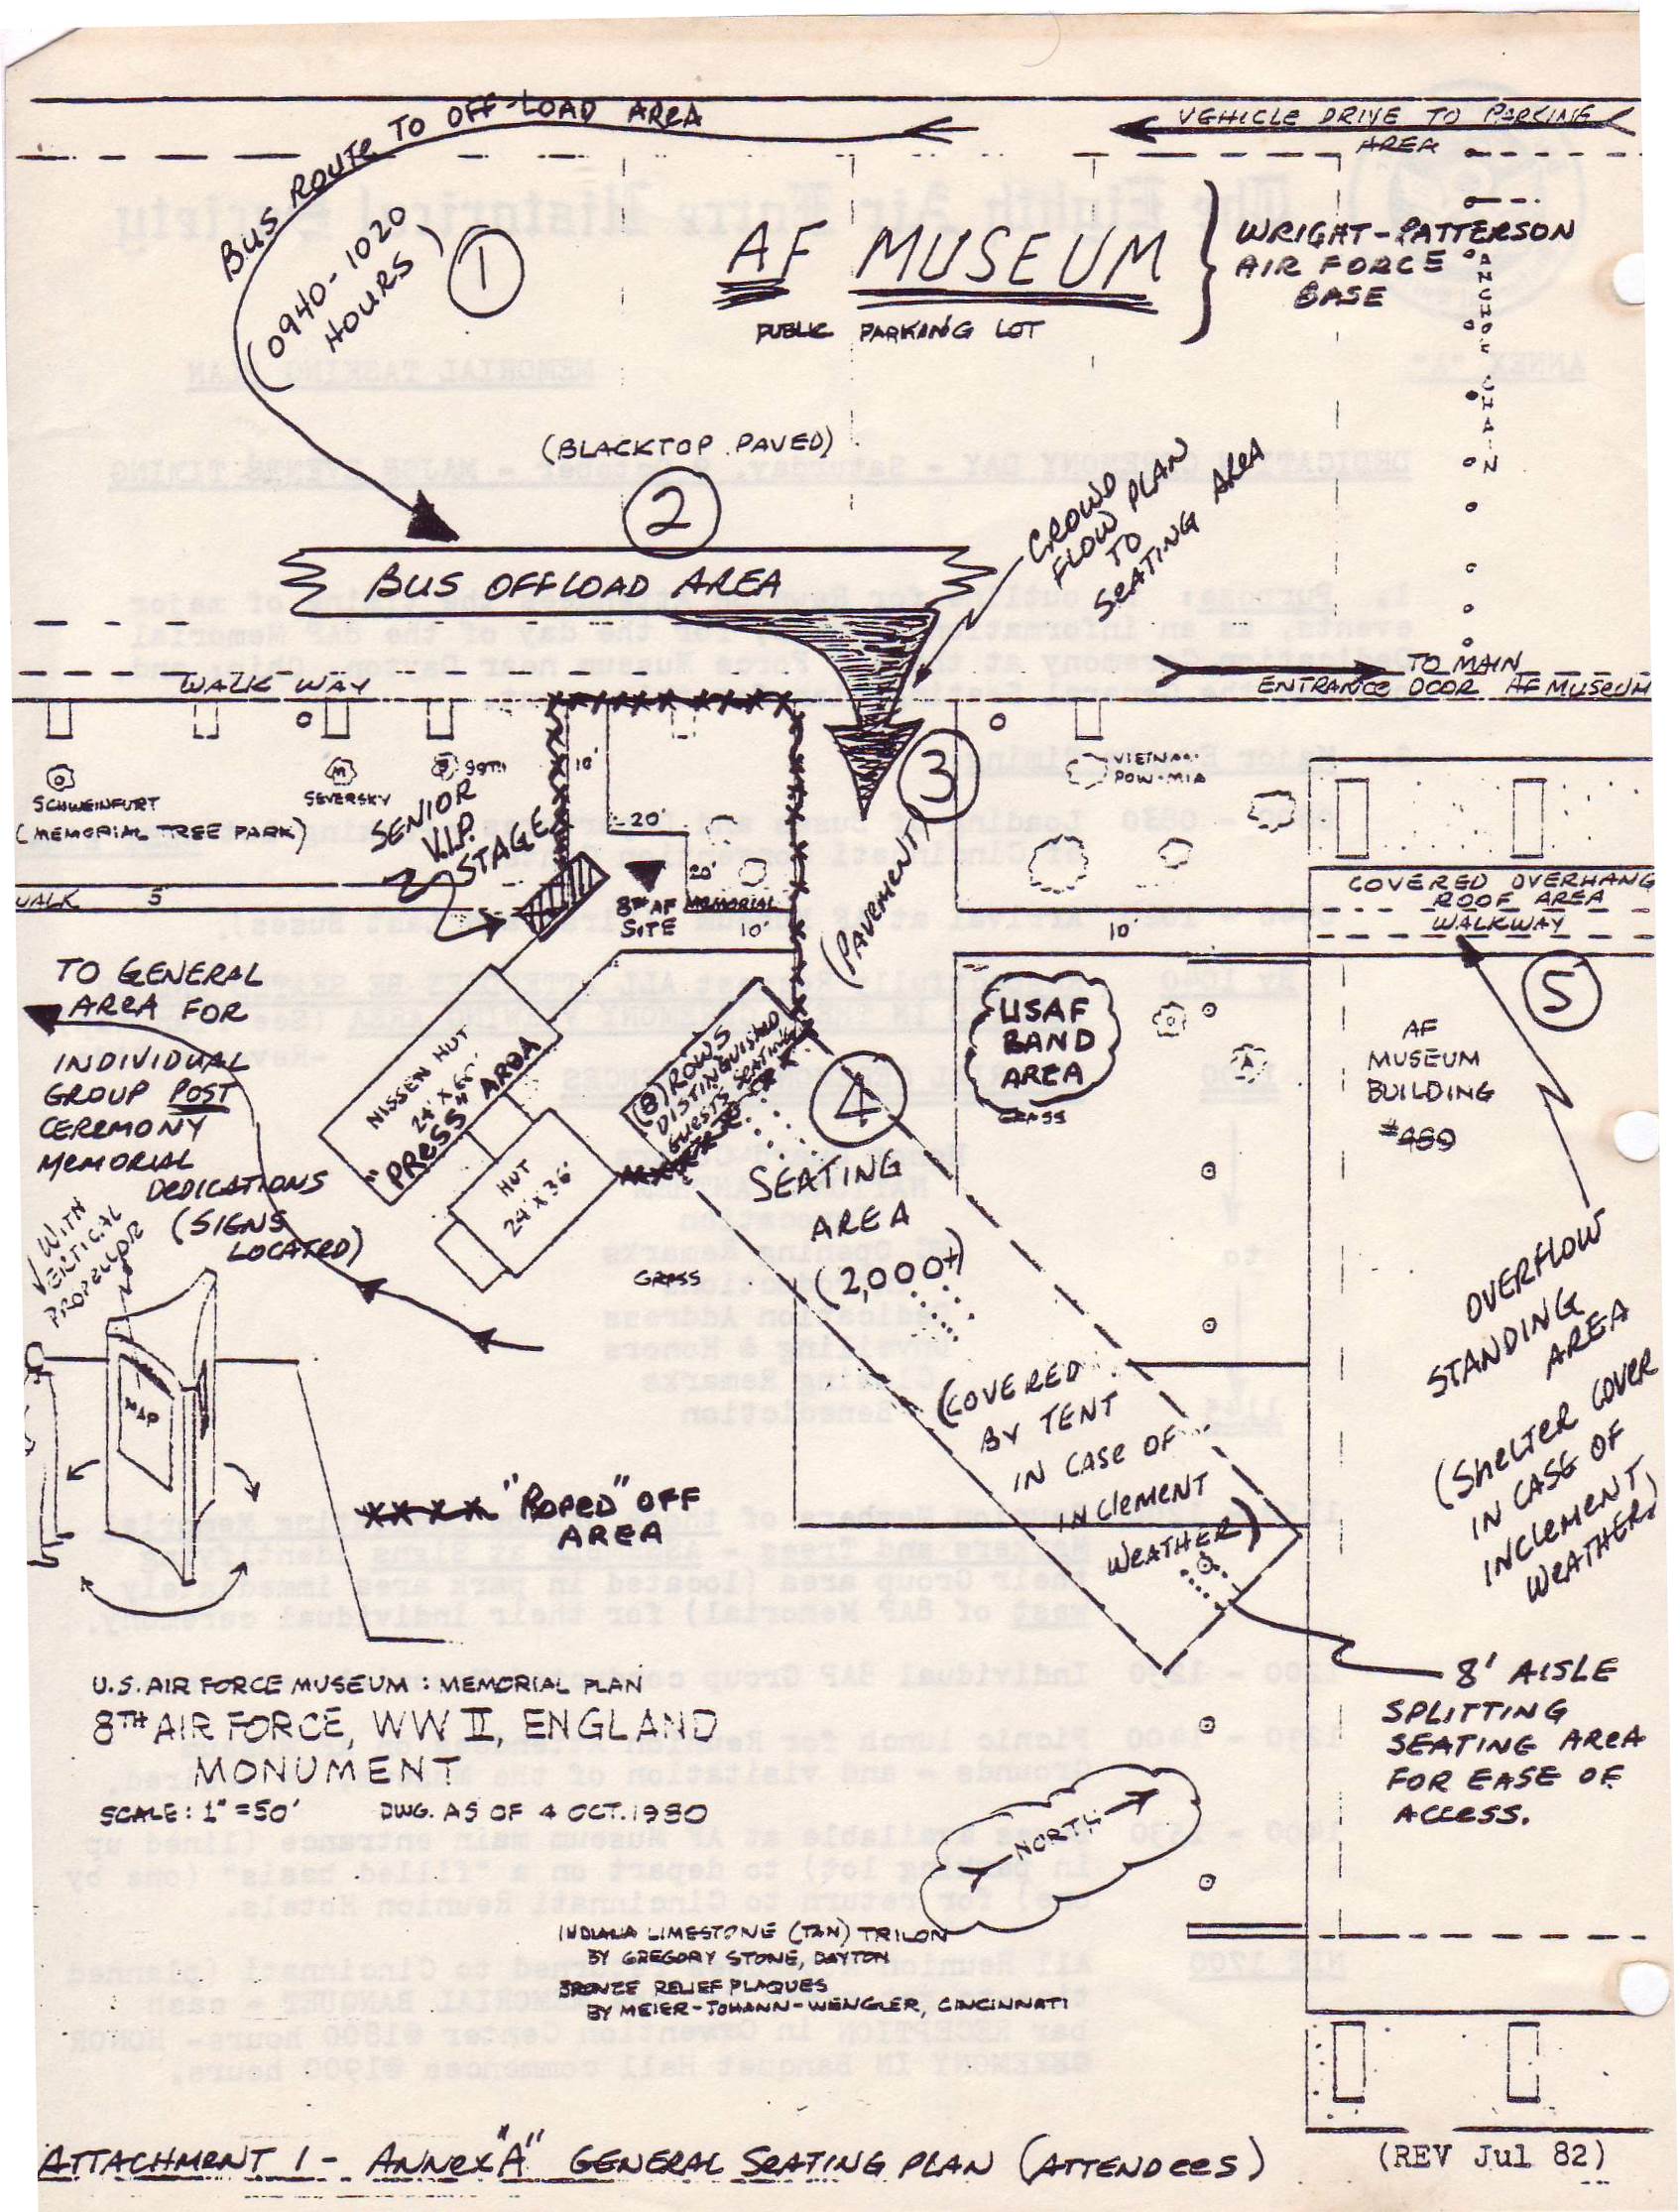 BUS ROUTE TO OFF-LOAD AREA
VEHICLE DRIVE TO PARKING
AREA
(0940-1020
HOURS)
1
AF MUSEUM
PUBLIC PARKING LOT
WRIGHT-PATTERSON
AIR FORCE
BASE
ANCHOR CHAIN
(BLACKTOP PAVED)
2
BUS OFFLOAD AREA
CROWD
FLOW PLAN
TO
SEATING AREA
WALK WAY
TO MAIN
ENTRANCE DOOR AF MUSEUM
3
SCHWEINFURT
(MEMORIAL TREE PARK)
M
SEVERSKY
99TH
SENIOR
V.I.P.
STAGE
10'
20'
20'
8TH AF MEMORIAL
SITE
10'
VIETNAM
POW-MIA
(PAVEMENT)
COVERED OVERHANG
ROOF AREA
WALKWAY
WALK 5'
10'
5
TO GENERAL
AREA FOR
INDIVIDUAL
GROUP POST
CEREMONY
MEMORIAL
DEDICATIONS
(SIGNS
LOCATED)
NISSEN HUT
24' X 60'
"PRESS" AREA
HUT
24' X 36'
(8) ROWS
DISTINGUISHED
GUESTS SEATING
4
SEATING
AREA
(2,000+)
USAF
BAND
AREA
GRASS
A
AF
MUSEUM
BUILDING
#489
GRASS
WITH
VERTICAL
PROPELLOR
MAP
(COVERED
BY TENT
IN CASE OF
INCLEMENT
WEATHER)
OVERFLOW
STANDING
AREA
(SHELTER COVER
IN CASE OF
INCLEMENT
WEATHER)
XXXX "ROPED" OFF
AREA
8' AISLE
SPLITTING
SEATING AREA
FOR EASE OF
ACCESS.
U.S. AIR FORCE MUSEUM : MEMORIAL PLAN
8TH AIR FORCE, WW II, ENGLAND
MONUMENT
SCALE: 1" = 50' DWG. AS OF 4 OCT. 1980
NORTH
INDIANA LIMESTONE (TAN) TRILON
BY GREGORY STONE, DAYTON
BRONZE RELIEF PLAQUES
BY MEIER-JOHANN-WENGLER, CINCINNATI
ATTACHMENT 1 - ANNEX "A" GENERAL SEATING PLAN (ATTENDEES)
(REV Jul 82)